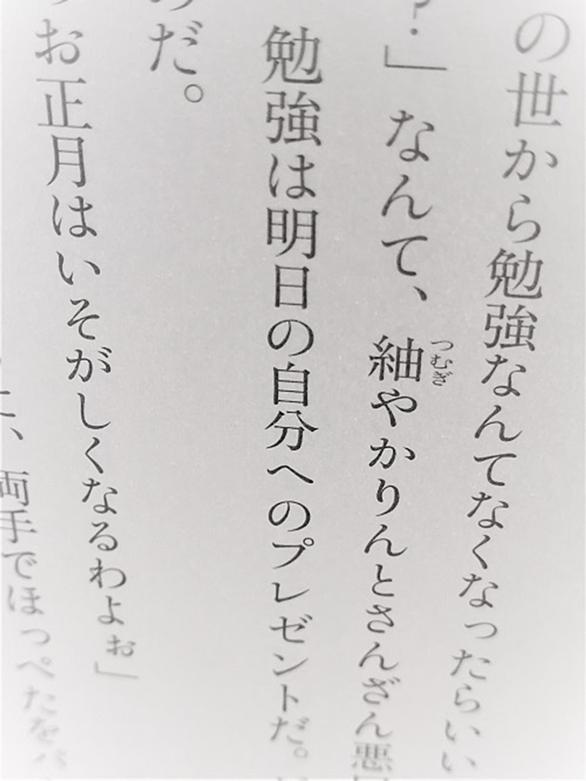 の世から勉強なんてなくなったらいい
?」なんて、紬やかりんとさんざん悪
つむぎ
勉強は明日の自分へのプレゼントだ。
のだ。
お正月はいそがしくなるわよぉ」
、両手でほっぺたを